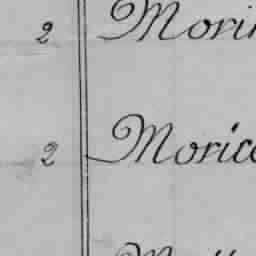 2 Morin
2 Morico